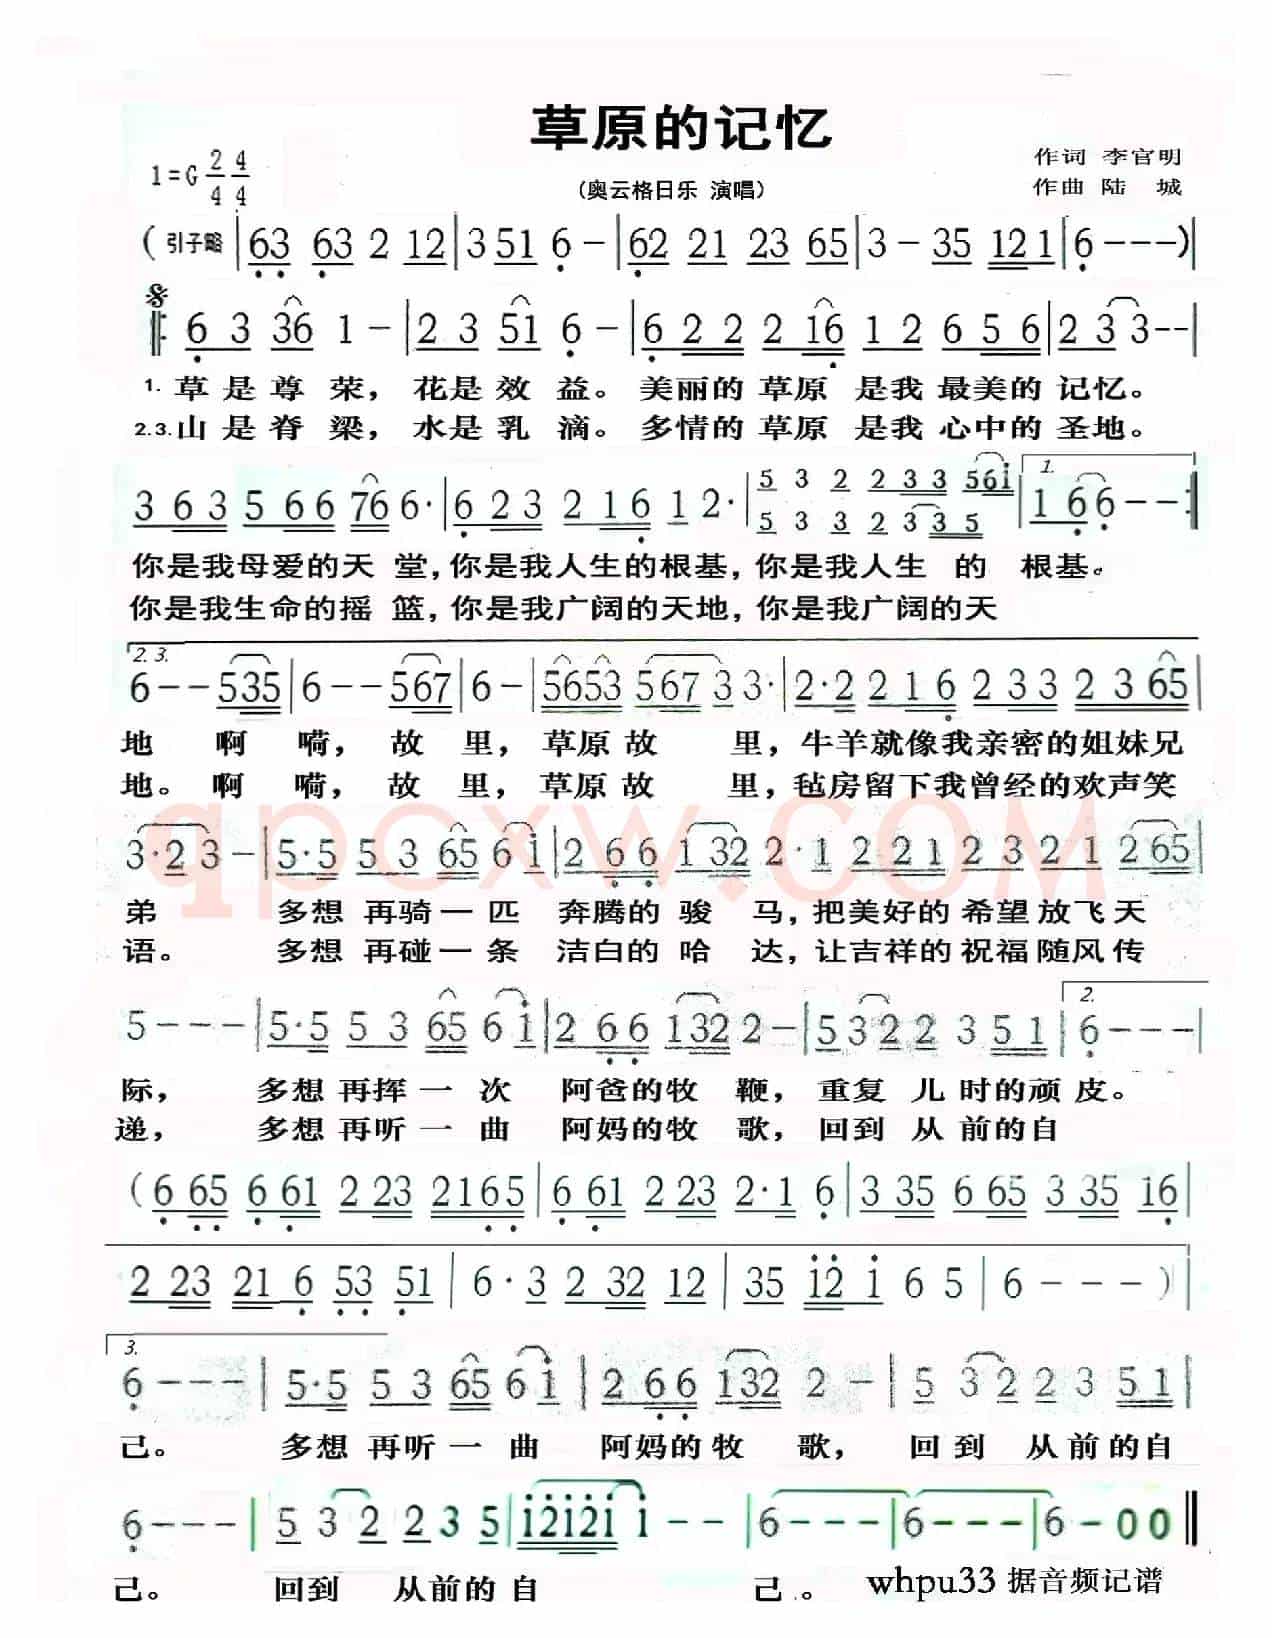 草原的记忆
1=G 2/4 4/4
作词 李官明
(奥云格日乐 演唱)
作曲 陆 城
( 引子略 | 63 63 2 12 | 3 51 6 - | 62 21 23 65 | 3 - 35 121 | 6 - - - ) |
6 3 36 1 - | 2 3 51 6 - | 6 2 2 2 16 1 2 6 5 6 | 2 3 3 - - |
1. 草是尊荣，花是效益。美丽的草原 是我最美的记忆。
2.3. 山是脊梁，水是乳滴。多情的草原 是我心中的圣地。
3 6 3 5 6 6 76 6· | 6 2 3 2 1 6 1 2· | 5 3 2 2 3 3 56i | 1. 1 6 6 - - :|
5 3 3 2 3 3 5
你是我母爱的天 堂，你是我人生的根基，你是我人生 的 根基。
你是我生命的摇 篮，你是我广阔的天地，你是我广阔的天
2. 3.
6 - - 535 | 6 - - 567 | 6 - | 5653 567 3 3· | 2·2 2 1 6 2 3 3 2 3 65 |
地 啊 嗬， 故 里，草原故 里，牛羊就像我亲密的姐妹兄
地。 啊 嗬， 故 里，草原故 里，毡房留下我曾经的欢声笑
qpcxw.COM
3·2 3 - | 5·5 5 3 65 6 i | 2 6 6 1 32 2·1 2 2 1 2 3 2 1 2 65 |
弟 多想 再骑一 匹 奔腾的 骏 马，把美好的 希望放飞天
语。 多想 再碰一 条 洁白的 哈 达，让吉祥的 祝福随风传
5 - - - | 5·5 5 3 65 6 i | 2 6 6 132 2 - | 5 3 2 2 3 5 1 | 2. 6 - - - |
际， 多想再挥一 次 阿爸的牧 鞭，重复 儿 时的顽 皮。
递， 多想再听一 曲 阿妈的牧 歌，回到 从 前的自
( 6 65 6 61 2 23 2165 | 6 61 2 23 2·1 6 | 3 35 6 65 3 35 16 |
2 23 21 6 53 51 | 6·3 2 32 12 | 35 i2 i 6 5 | 6 - - - ) |
3.
6 - - - | 5·5 5 3 65 6 i | 2 6 6 132 2 - | 5 3 2 2 3 5 1 |
己。 多想 再听一 曲 阿妈的牧 歌， 回到 从前的自
6 - - - | 5 3 2 2 3 5 | i2i2i i - - | 6 - - - | 6 - - - | 6 - 0 0 ||
己。 回到 从前的自 己。 whpu33 据音频记谱